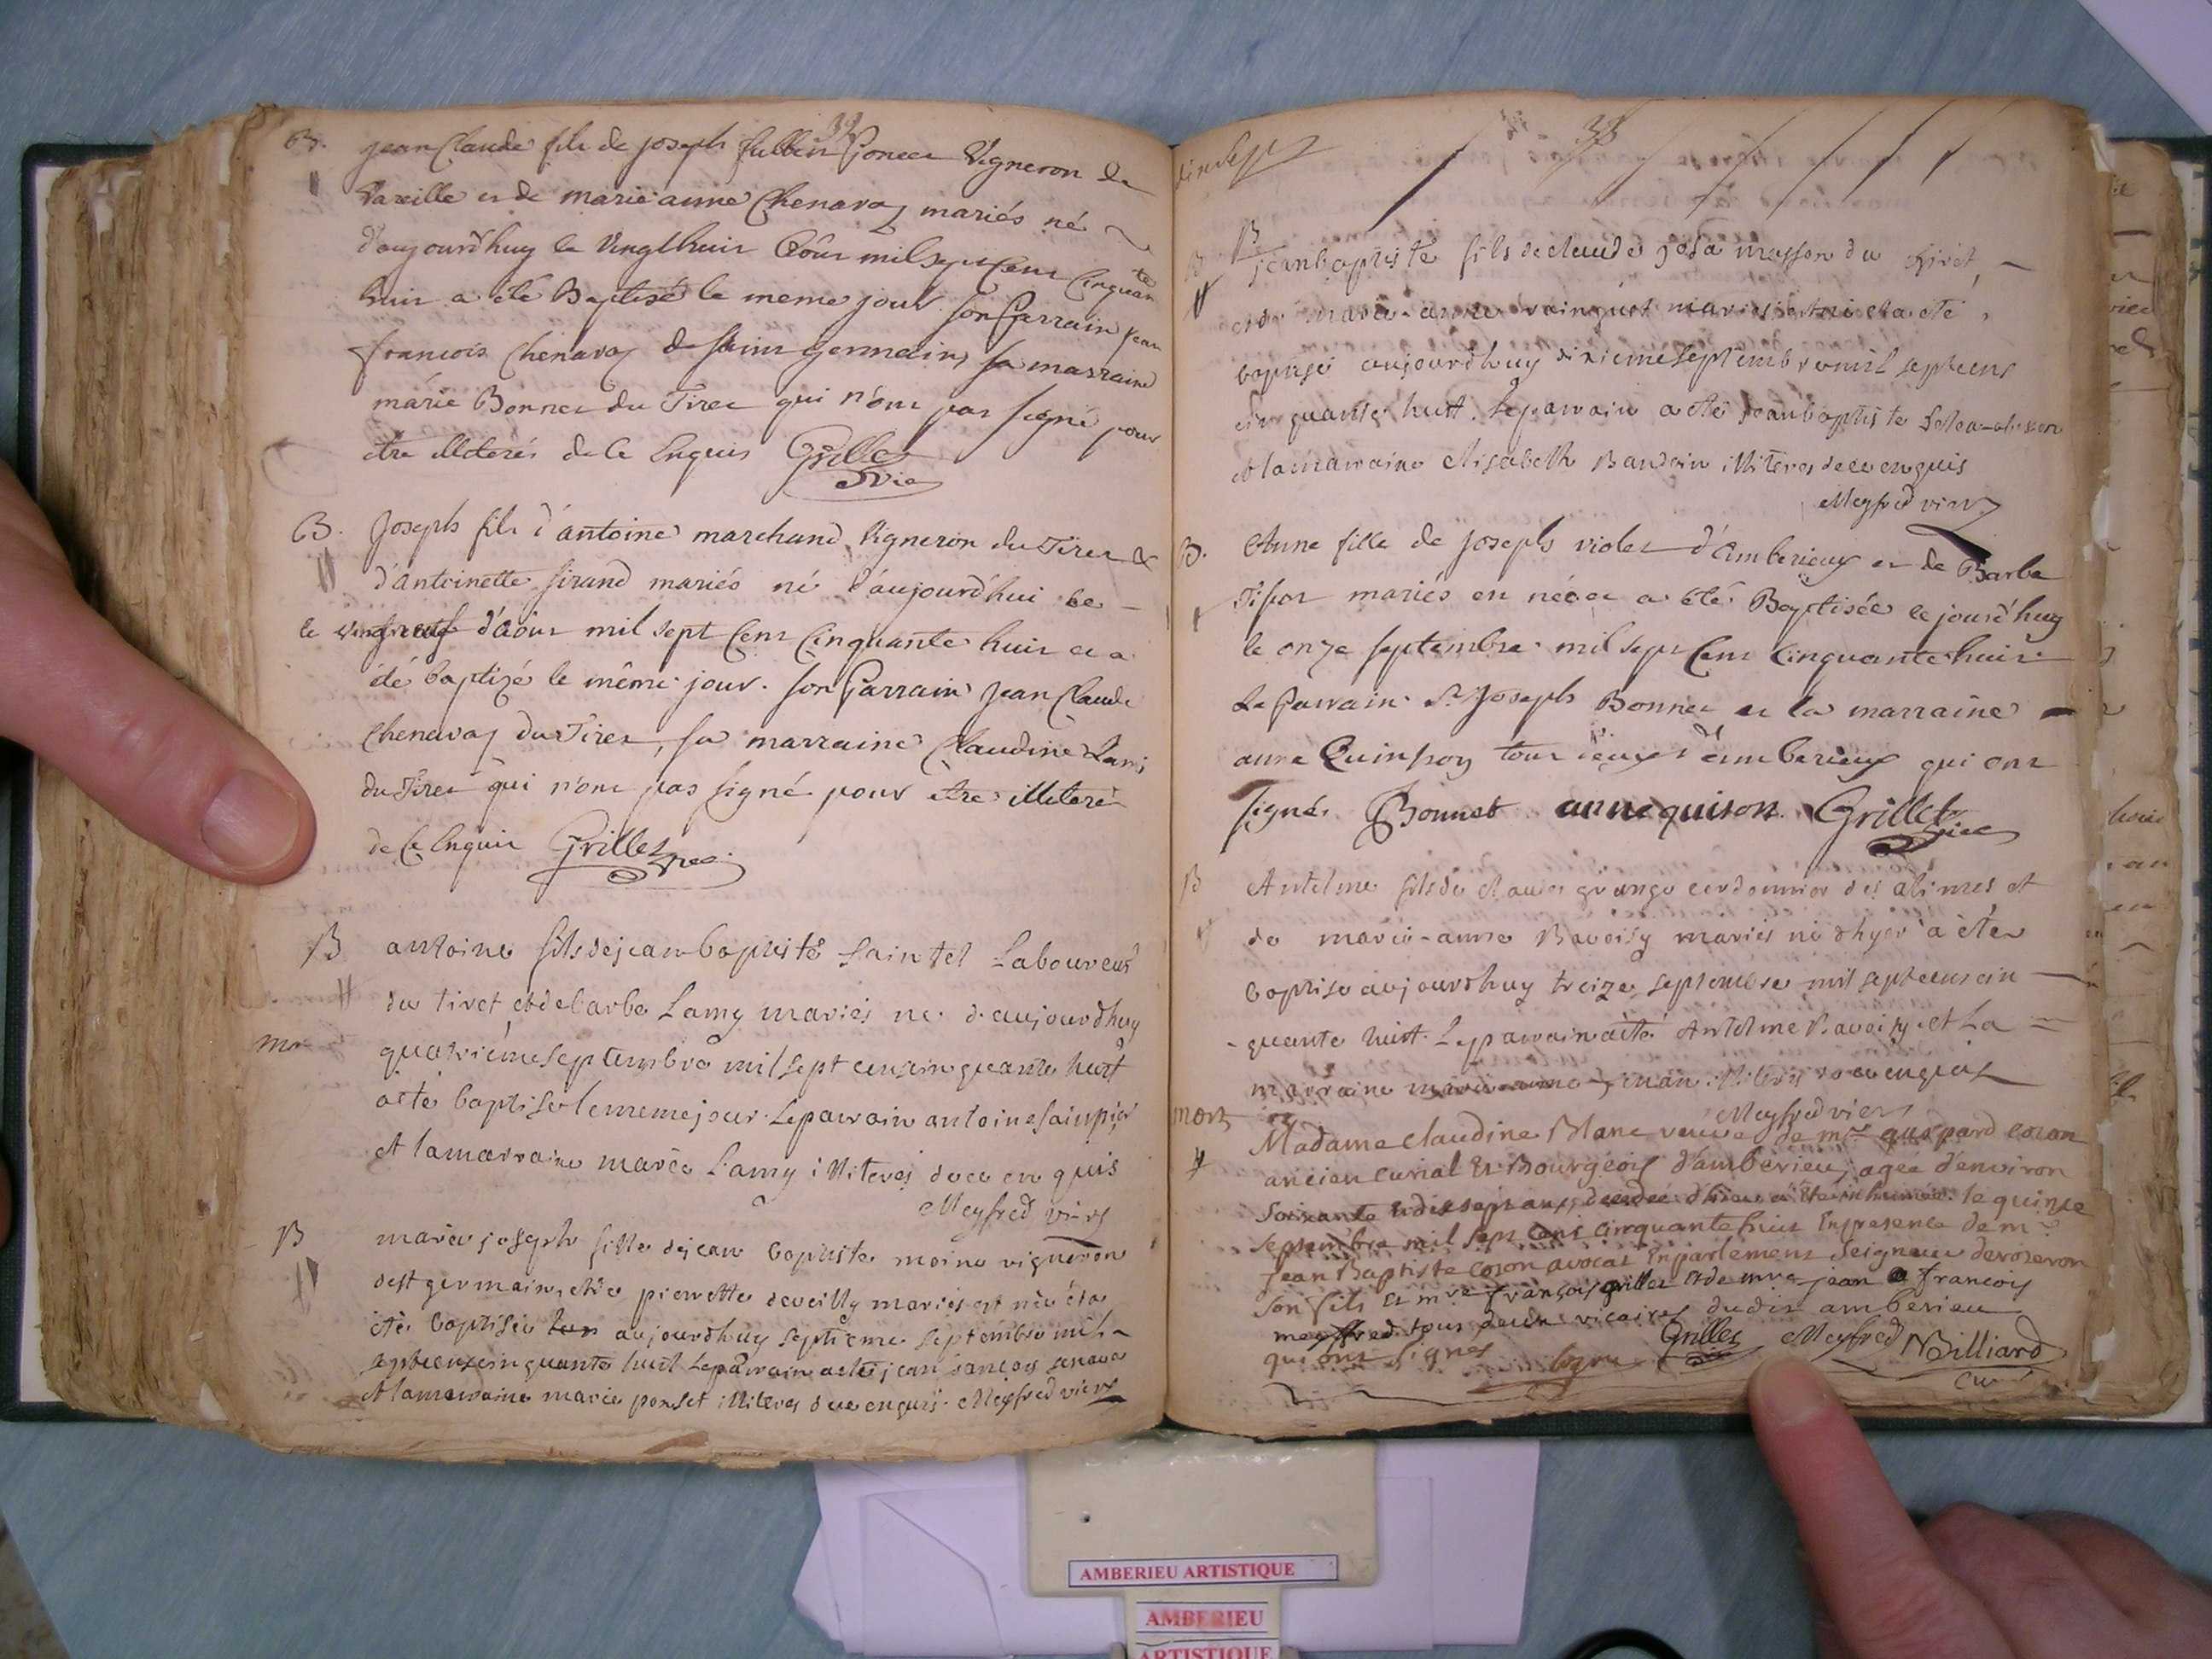 B. jean Claude fils de joseph fullin Poncer Vigneron de
Vareille et de marie anne Chenavaz mariés né
d'aujourdhuy le Vingthuit Août mil sept Cent Cinquante
huit a été Baptisé le meme jour. son Parrain jean
francois Chenavaz de saint germain, sa marraine
marie Bonnet du Tiret qui n'ont pas signé pour
être illiterés de ce Enquis Grillet
Vic
B. Joseph fils d'antoine marchand Vigneron du Tiret &
d'antoinette sirand mariés né d'aujourd'hui ce
le vingtneuf d'aout mil sept Cent Cinquante huit et a
été baptizé le même jour. son Parrain Jean Claude
Chenavaz du Tiret, sa marraine Claudine Lami
du Tiret qui n'ont pas signé pour etre illiterés
de Ce Enquis Grillet vic
B antoine fils de jean baptiste saintel Laboureur
du tiret et de barbe Lamy mariés né d'aujourdhuy
quatrième septembre mil sept cent cinquante huit
a eté baptisé le meme jour. Le parrain antoine
et la marraine marie Lamy illiteres de ce enquis
Meyfred vicr
B marie joseph fille de jean baptiste moine vigneron
de st germain, et de pierrette deveilly mariés est née et a
été baptisée aujourdhuy septieme septembre mil
sept cent cinquante huit Le parrain a eté jean francois
et la marraine marie ponset illiteres de ce enquis. Meyfred vicr
38
B jean baptiste fils de claude masson du tiret
et de marie-anne mariés est né et a été
baptisé aujourdhuy dixieme septembre mil sept cent
cinquante huit. Le parrain a eté jean baptiste
et la marraine elisabeth Baudoin illiteres de ce enquis
Meyfred vicr
B. Anne fille de Joseph violet d'amberieux et de Barbe
Tissot mariés est née et a été Baptisée ce jourd'huy
le onze septembre mil sept Cent Cinquante huit
Le Parrain Sr Joseph Bonnet et la marraine
anne Quinson tous deux d'amberieux qui ont
signés Bonnet anne quison Grillet
vice
B Antelme fils de Claude grange cordonnier des abimes et
de marie-anne Ravoisy mariés né d'hyer a été
baptisé aujourdhuy treize septembre mil sept cent cin
quante huit. Le parrain a eté Antelme Ravoisy et La
marraine illiteres de ce enquis
Meyfred vicr
mort Madame Claudine Blanc veuve de mre gaspard cozon
ancien curial et Bourgeois d'amberieu, agée d'environ
soixante et dix sept ans, decedée d'hier a été inhumée le quinse
septembre mil sept cent cinquante huit En presence de mre
Jean Baptiste cozon avocat En parlement seigneur
son fils et mre françois grillet et de mre jean francois
meyffred tous deux vicaires dudit amberieu
qui ont signes Grillet Meyfred Billiard
curé
AMBERIEU ARTISTIQUE
AMBERIEU
ARTISTIQUE